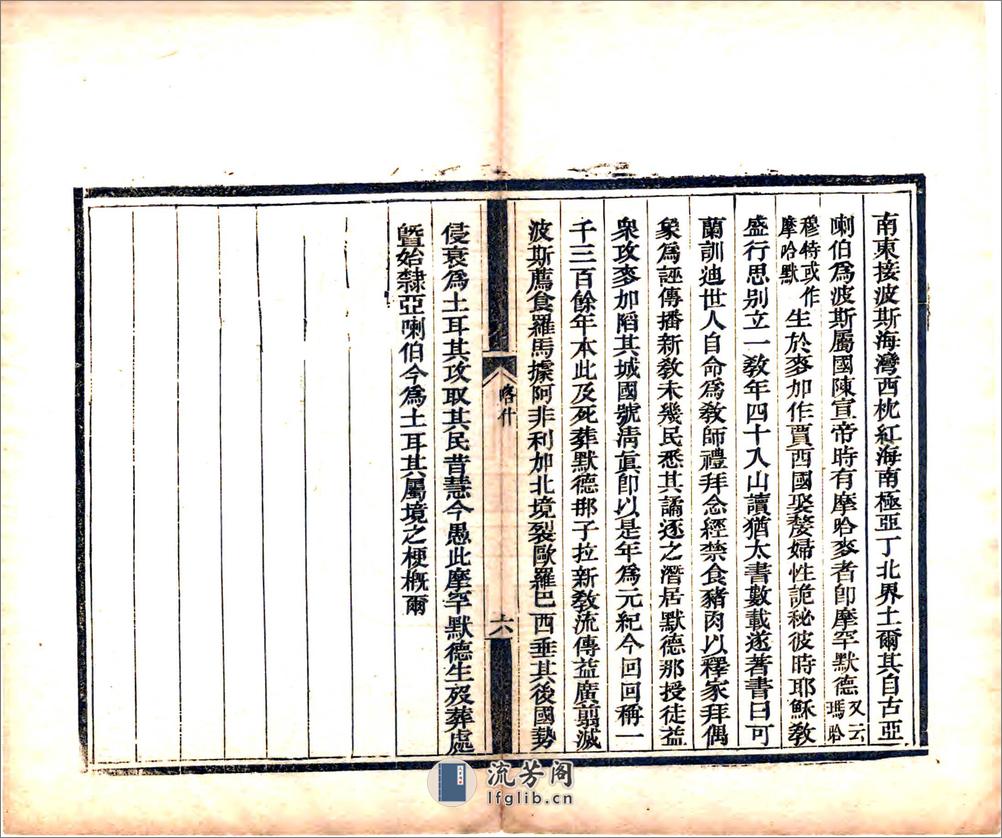 南東接波斯海灣西枕紅海南極亞丁北界土爾其自古亞
喇伯爲波斯屬國陳宣帝時有摩哈麥者卽摩罕默德又云瑪哈
穆特或作摩哈默生於麥加作賈西國娶嫠婦性詭秘彼時耶穌教
盛行思别立一教年四十入山讀猶太書數載遂著書曰可
蘭訓迪世人自命爲教師禮拜念經禁食豬肉以釋家拜偶
象爲誣傳播新教未幾民悉其譎逐之潛居默德那授徒益
衆攻麥加陷其城國號淸眞卽以是年爲元紀今回回稱一
千三百餘年本此及死葬默德那子拉新教流傳益廣翦滅
波斯薦食羅馬據阿非利加北境裂歐羅巴西垂其後國勢
略什
六
侵衰爲土耳其攻取其民昔慧今愚此摩罕默德生歿葬處
曁始隸亞喇伯今爲土耳其屬境之梗概爾
流芳阁
lfglib.cn